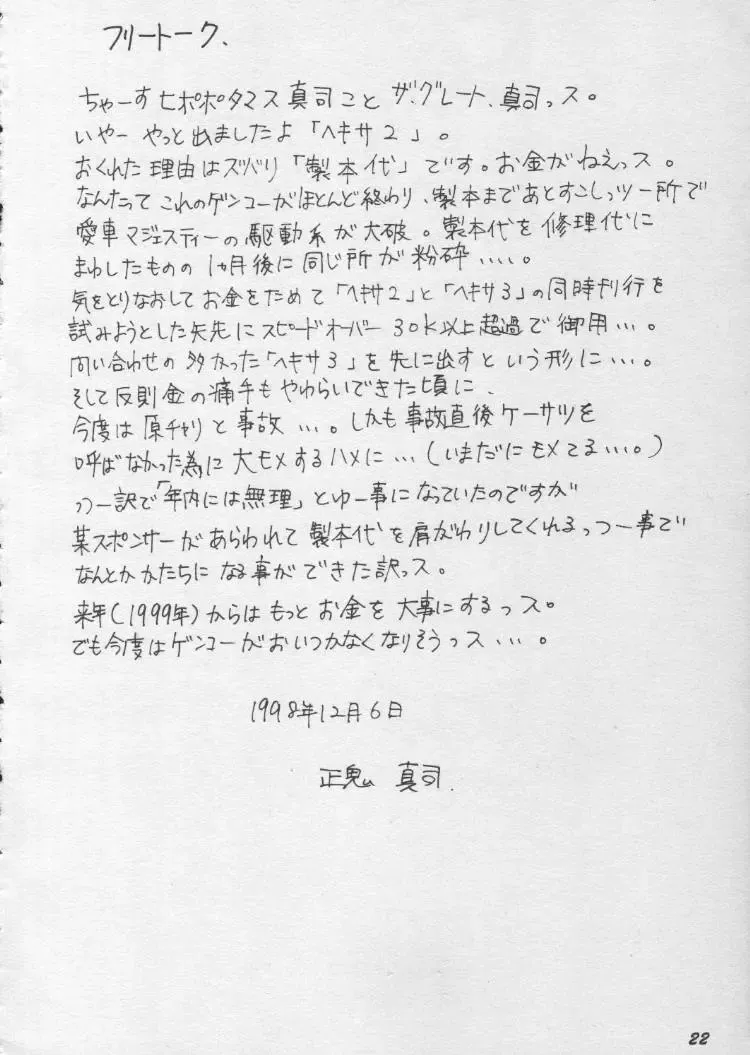 フリートーク、
ちゃーす ヒポポタマス 真司こと ザ・グレート、真司っス。
いやー やっと出ましたよ「ヘキサ2」。
おくれた理由はズバリ「製本代」です。お金がねえっス。
なんたって これのゲンコーがほとんど終わり、製本まであとすこしっツー所で
愛車マジェスティーの駆動系が大破。製本代を修理代に
まわしたものの 1ヶ月後に同じ所が粉砕‥‥。
気をとりなおしてお金をためて「ヘキサ2」と「ヘキサ3」の同時刊行を
試みようとした矢先にスピードオーバー 30k以上超過で御用…。
問い合わせの多かった「ヘキサ3」を先に出すという形に…。
そして反則金の痛手もやわらいできた頃に、
今度は原チャリと事故…。しかも事故直後ケーサツを
呼ばなかった為に大モメするハメに…(いまだにモメてる…。)
つー訳で「年内には無理」とゆー事になっていたのですが
某スポンサーがあらわれて製本代を肩がわりしてくれるっつー事で
なんとかかたちになる事ができた訳っス。
来年(1999年)からはもっとお金を大事にするっス。
でも今度はゲンコーがおいつかなくなりそうっス…。
1998年12月6日
正鬼 真司.
22